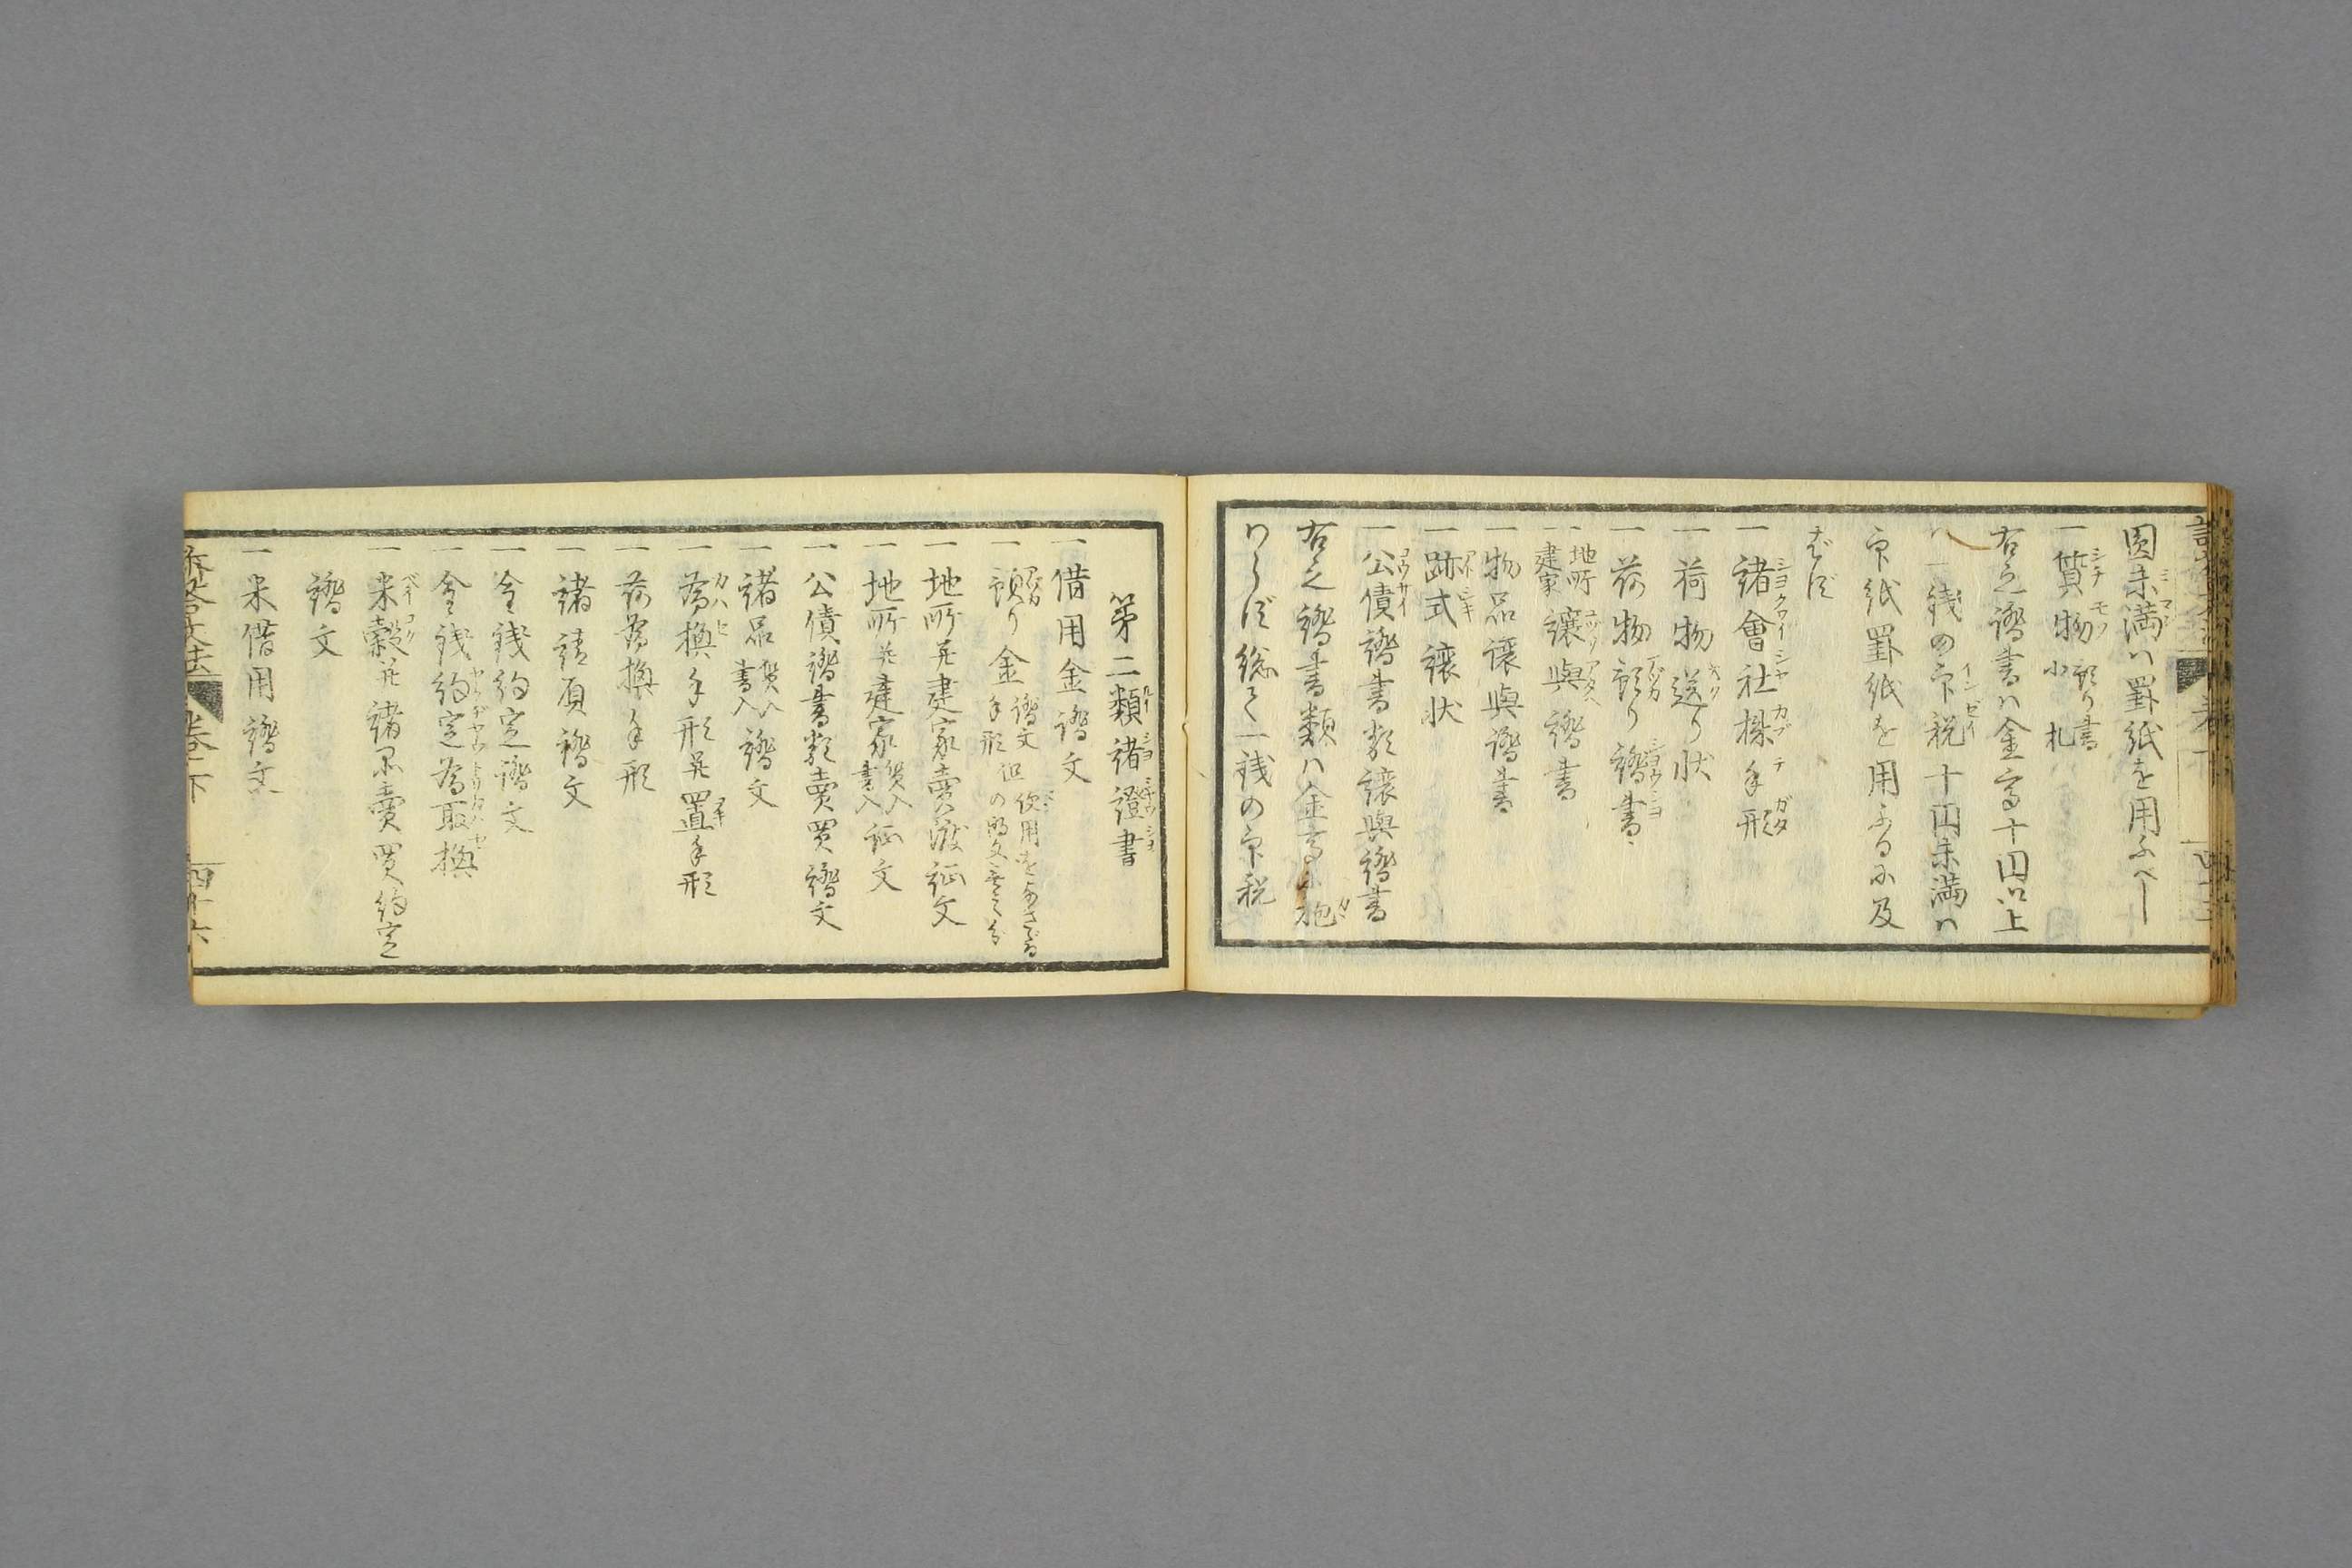 圓未満ハ罫紙を用ふべし
一質物預り書小札
右之證書ハ金高十円以上
ハ一銭の印税十円未満ハ
印紙罫紙を用ふるに及
ばず
一諸會社株手形
一荷物送り状
一荷物預り證書
一地所建家讓與證書
一物品讓與證書
一跡式讓状
一公債證書類讓與證書
右之證書類ハ金高に抱
わらず総て一銭の印税
第二類諸證書
一借用金證文
一預り金證文手形但使用をゆるさゞる
一地所并建家賣渡証文
一地所并建家質入書入証文
一公債證書類賣買證文
一諸品質入書入證文
一為換手形并置手形
一荷為換手形
一諸請負證文
一金銭約定證文
一金銭約定為取換
一米穀并諸品賣買約定
證文
一米借用證文
卷下
四十六